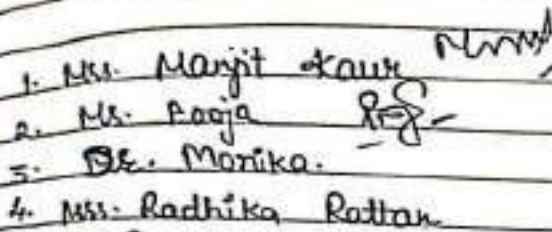 1. Mrs. Manjit Kaur
2. Ms. Pooja
3. Dr. Monika.
4. Mrs. Radhika Rattan